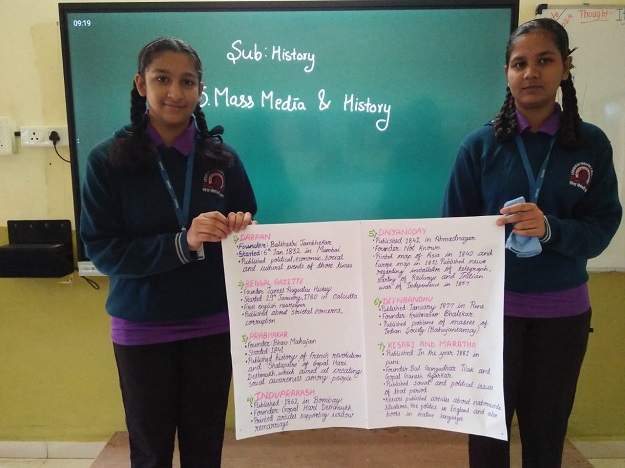 09:19
Sub: History
5. Mass Media & History
Thought
1) DARPAN
• Founder: Balshastri Jambhekar
• Started: 6th Jan 1832 in Mumbai
• Published political, economic, social
and cultural events of those times
2) BENGAL GAZETTE
• Founder James Augustus Hickey
• Started 29th January, 1780 in Calcutta
• First english newspaper
• Published about societal concerns,
corruption
3) PRABHAKAR
• Founder: Bhau Mahajan
• Started: 1841
• Published history of French revolution
and Shatapatre of Gopal Hari
Deshmukh, which aimed at creating
social awareness among people
4) INDUPRAKASH
• Published: 1862, in Bombay
• Founder: Gopal Hari Deshmukh
• Printed articles supporting widow
remarriage
5) DNYANODAY
• Published 1842 in Ahmadnagar
• Founder: Not Known
• Printed map of Asia in 1840 and
Europe map in 1851. Published news
regarding installation of telegraph,
starting of Railways and Indian
war of Independence in 1857
6) DEENBANDHU
• Published January 1877 in Pune
• Founder: Krishnarao Bhalekar
• Published problems of masses of
Indian Society (Bahujansamaj)
7) KESARI AND MARATHA
• Published In the year 1881 in
pune
• Founder Bal Gangadhar Tilak and
Gopal Ganesh Agarkar
• Published social and political issues
of that period
• Kesari published articles about nationwide
situations, the politics in England and also
books in native languages